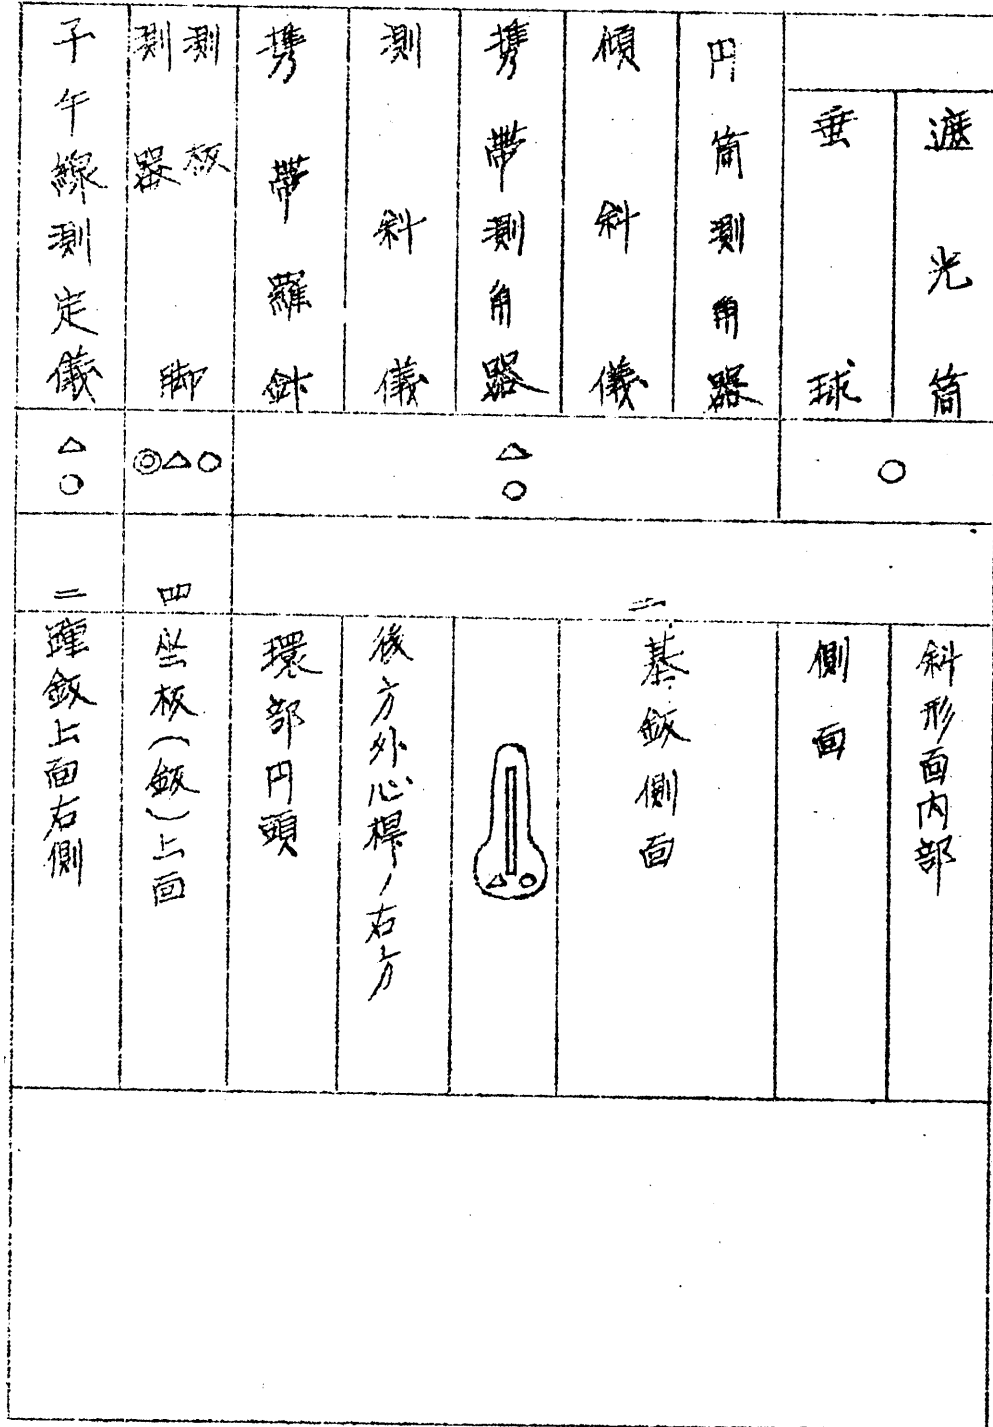 遮光筒
垂球
円筒測角器
傾斜儀
携帯測角器
測斜儀
携帯羅針
測板
測器脚
子午線測定儀
○
△○
◎△○
△○
二
四
二
斜形面内部
側面
基鈑側面
△○
後方外心桿ノ右方
環部円頭
坐板(鈑)上面
踵鈑上面右側